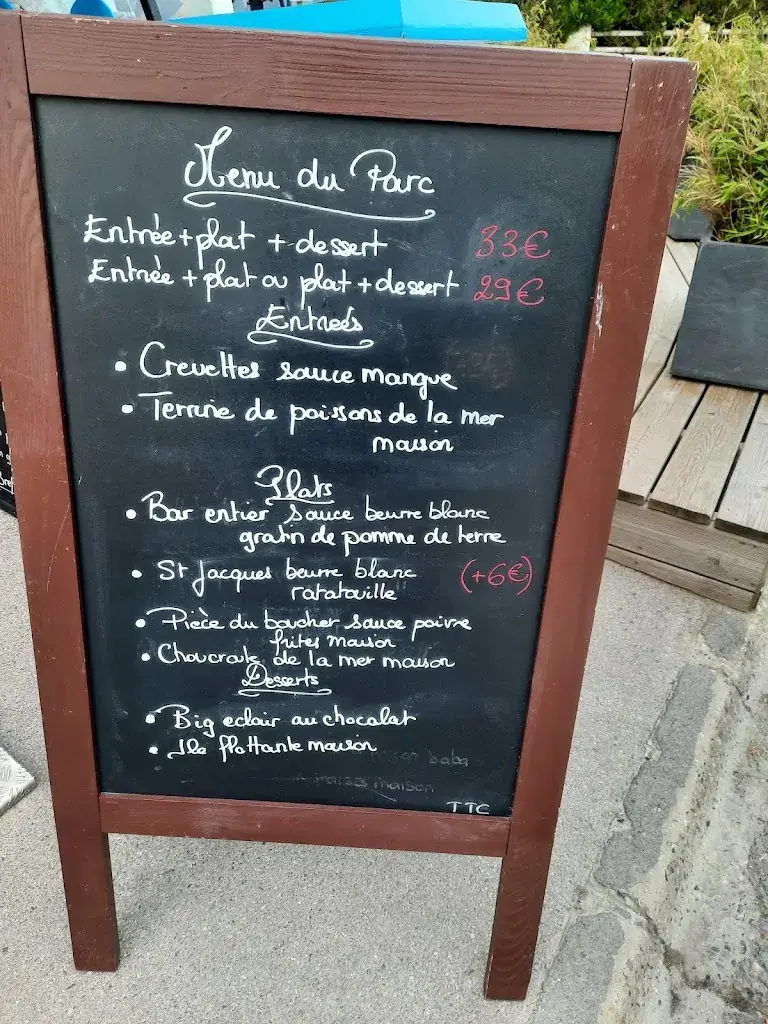 Menu du Parc
Entrée + plat + dessert 33€
Entrée + plat ou plat + dessert 29€
Entrées
• Crevettes sauce mangue
• Terrine de poissons de la mer
maison
Plats
• Bar entier sauce beurre blanc
gratin de pomme de terre
• St Jacques beurre blanc (+6€)
ratatouille
• Pièce du boucher sauce poivre
frites maison
• Choucroute de la mer maison
Desserts
• Big eclair au chocolat
• Ile flottante maison
baba
maison
TTC